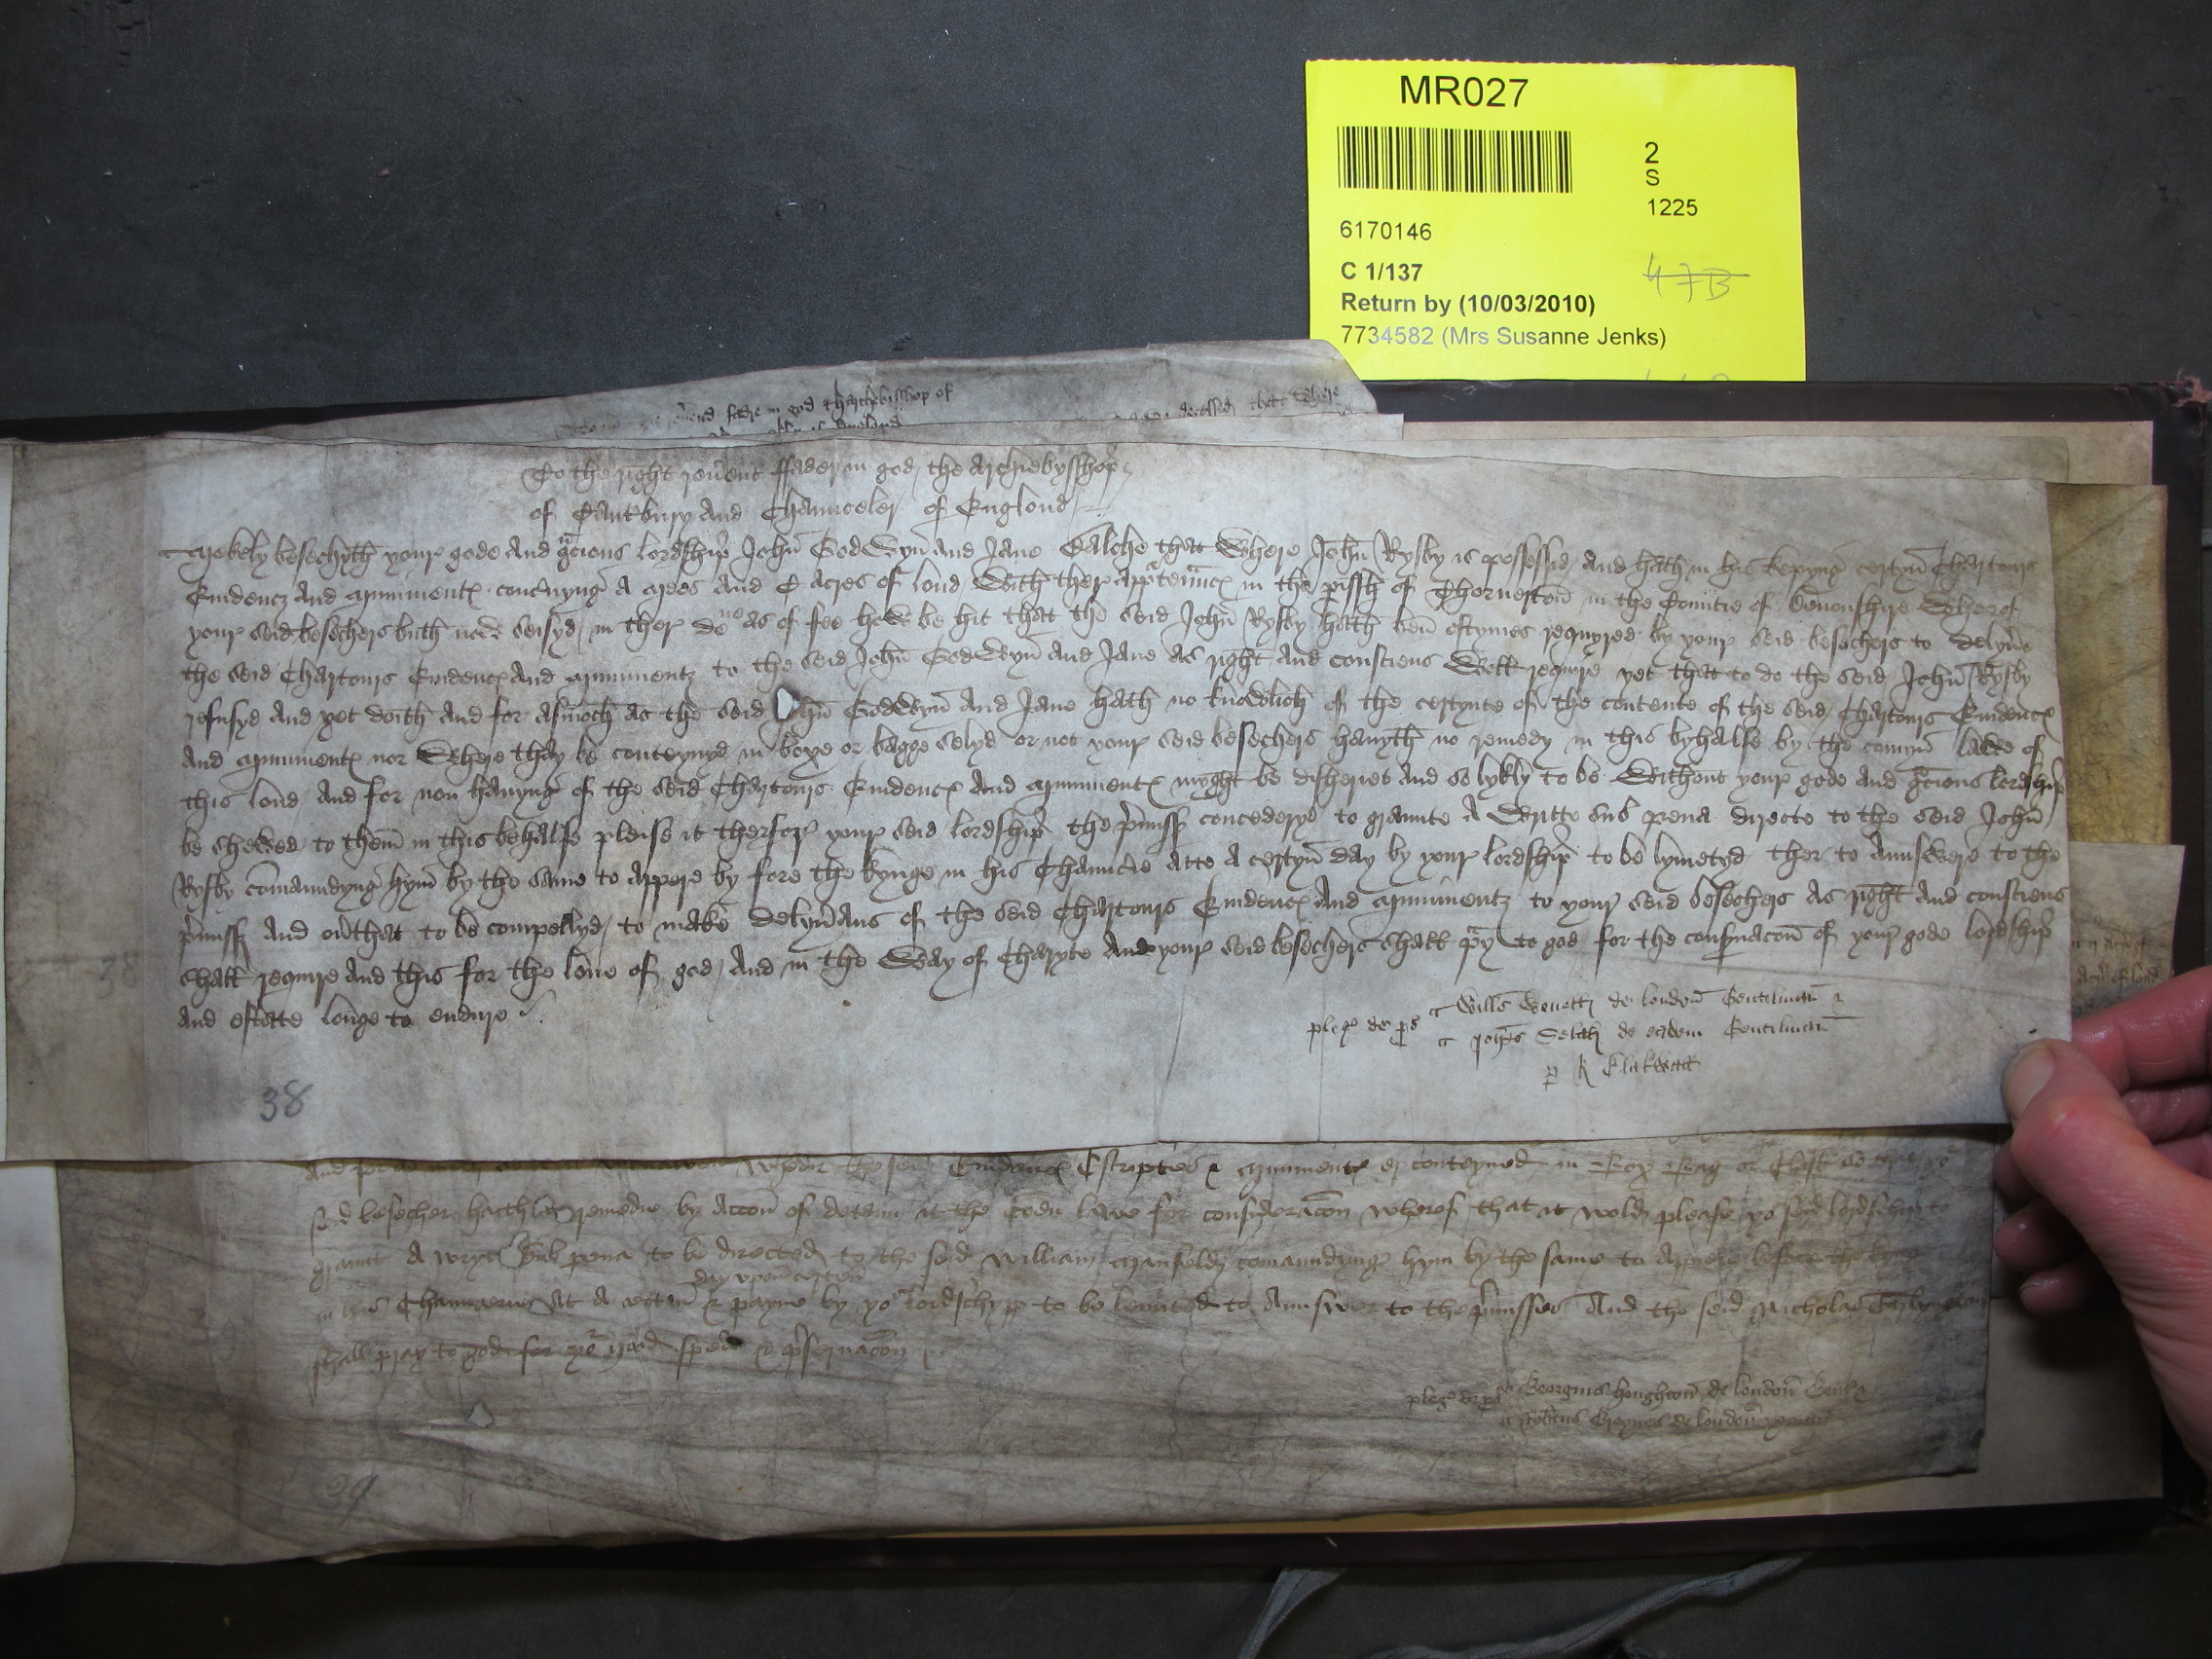 MR027
2
S
1225
6170146
C 1/137
47B
Return by (10/03/2010)
7734582 (Mrs Susanne Jenks)
fadre in god tharchebisshop of
that Where
To the right reu'ent ffader in god the Archiebysshop'
of Cant'bury And Chaunceler of Englond
Mekely besechyth your gode And g'cious lordship' John' Godwyn' And Jane Calche that Where John' Rysby is possessid And hath in his kepyng' certyn' Chartours
Euidencz And Munimentz conc'nyng' A mees And C acres of lond With ther App'ten'ncz in the p'issh of Thorverton' in the Comitie of Deuonshire Wherof
your seid besechers buth nowe seisyd in ther demene As of fee how be hit that the seid John' Rysby hath ben' oftymes requyred by your seid besechers to delyu'e
the seid Chartours Euidencz And Munimentz to the seid John' Godwyn' And Jane As right And consciens Woll require yet that to do the seid John' Rysby
refusyd And yet doith And for Asmoch As the seid John' Godwyn' And Jane hath no knowlich of the certynte of the contente of the seid Chartours Euidencz
And Munimentz nor Where thay be conteynyd in boxe or bagge selyd or not your seid besechers hauyth no remedy in this byhalfe by the comyn' lawe of
this lond And for non hauyng' of the seid Chartours Euidencz And Munimentz myght be disheriet And so lykly to be Without your gode And g'cious lordship'
be shewed to them in this behalfe please it therfor your seid lordship' the p'miss' concederyd to graunte A Writte sub pena directe to the seid John'
Rysby comaundyng' hym' by the same to Appere by fore the kynge in his Chauncrie Atte A certyn' day by your lordship' to be lymetyd ther to Aunswere to the
p'miss' And ou'that to be compellyd to make delyu'ans of the seid Chartours Euidencz And Munimentz to your seid besechers As right And consciens
shall require And this for the loue of god And in the Way of Charyte And your seid besechers shall p'y to god for the conseruacon' of your gode lordship'
And estate longe to endure
pleg' de ps' Will's de london' Gentilman
Joh'es de eadem Gentilman
p' R Blakwall
38
38
the seid Euidencz Escriptes & Munimentz er conteyned in Box Bag or Chest so that yo'
seid besecher hath remedie by Accon' of deteni' at the Co'en lawe for consideracon' wherof that it wold please yo' seid lordschip to
graunt A wryt Sub pena to be directed to the seid William Maunseld comaundyng' hym by the same to Appere before the kyng
day vpon' certen'
in his Chauncerie At A certen' & payne by yo' lordschypp to be lemited to Aunswer to the p'misses And the seid Nicholas
schall pray to god for yo' good sped & p'seruacon'
pleg' de ps' Georgius houghton' de london' Gent'
Rob'tus de london' yoman'
39